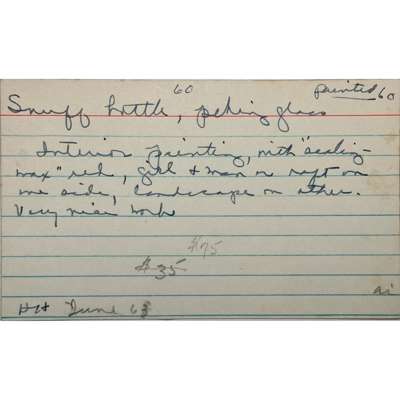 60
painted 60
Snuff bottle, peking glass
Interior painting, with "sealing-
wax" red, girl & man on raft on
one side, landscape on other.
Very nice work
$75
$35
June 63